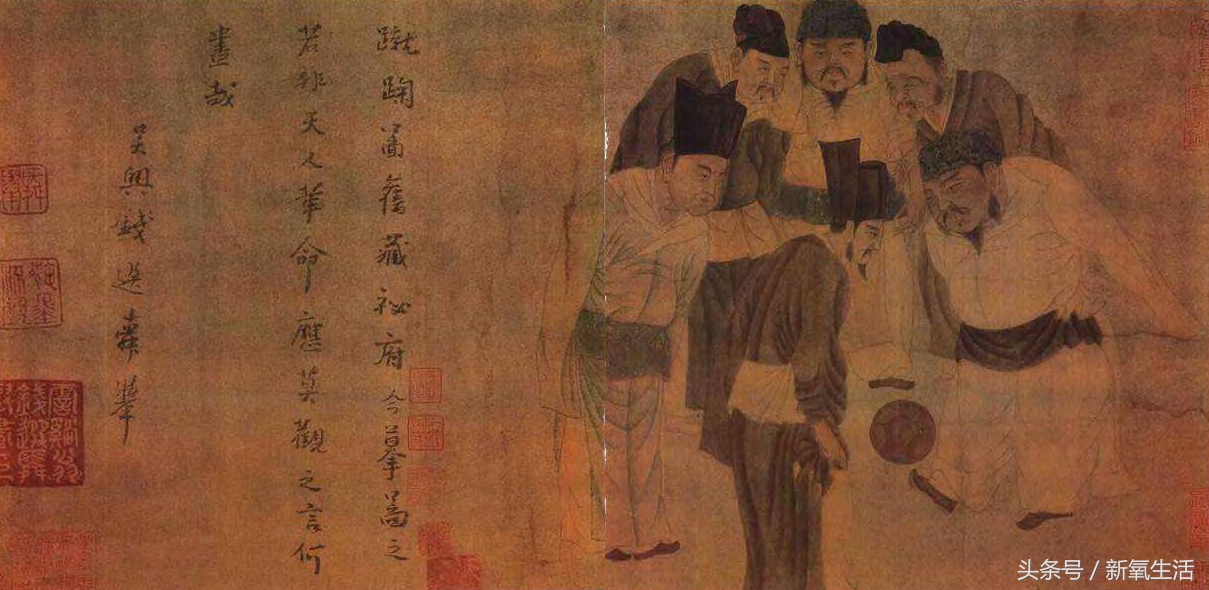 蹴踘啚舊藏祕府今摹啚之
若非天人革命應莫觀之言何
畫哉
吴興錢選舜舉
头条号 / 新氧生活